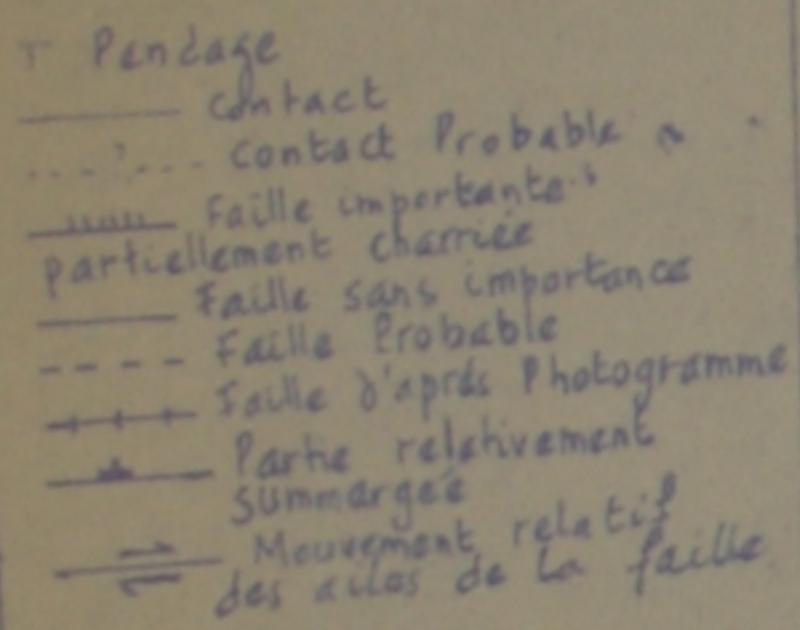 Pendage
contact
? contact Probable
Faille importante
partiellement charriée
Faille sans importance
Faille Probable
Faille d'aprés Photogramme
Partie relativement
summargeé
Mouvement relatif
des ailes de la faille